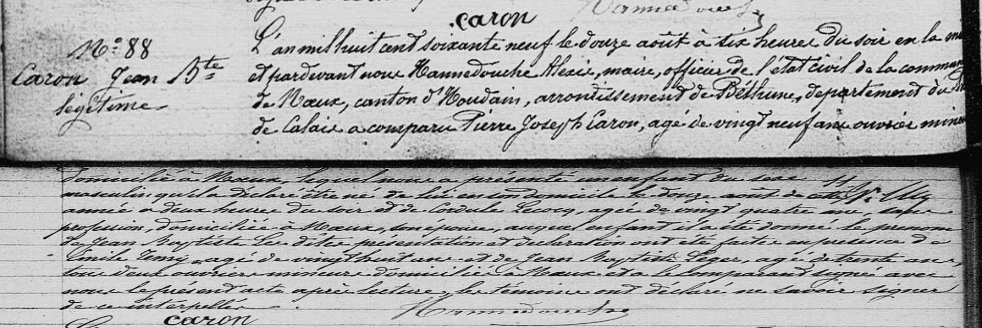 caron
N° 88
Caron Jean Bte
légitime
L'an mil huit cent soixante neuf le douze août à six heures du soir en la
et pardevant nous Hannedouche Alexis, maire, officier de l'état civil de la commune
de Nœux, canton d'Houdain, arrondissement de Béthune, département du Pas
de Calais a comparu Pierre Joseph Caron, agé de vingt neuf ans ouvrier mineur
domicilié à Nœux, lequel nous a présenté un enfant du sexe
masculin qu'il a déclaré être né de lui en son domicile le douze août de cette
année à deux heures du soir et de Cordule Lecocq, agée de vingt quatre ans, sans
profession, domiciliée à Nœux, son épouse, auquel enfant il a été donné le prénom
de Jean Baptiste Les dites présentation et déclaration ont été faites en présence de
Emile agé de vingt huit ans et de Jean Baptiste Leger, agé de trente ans
tous deux ouvriers mineurs domiciliés à Nœux et a le comparant signé avec
nous le présent acte après lecture, les témoins ont déclaré ne savoir signer
de ce interpellés
caron
Hannedouche